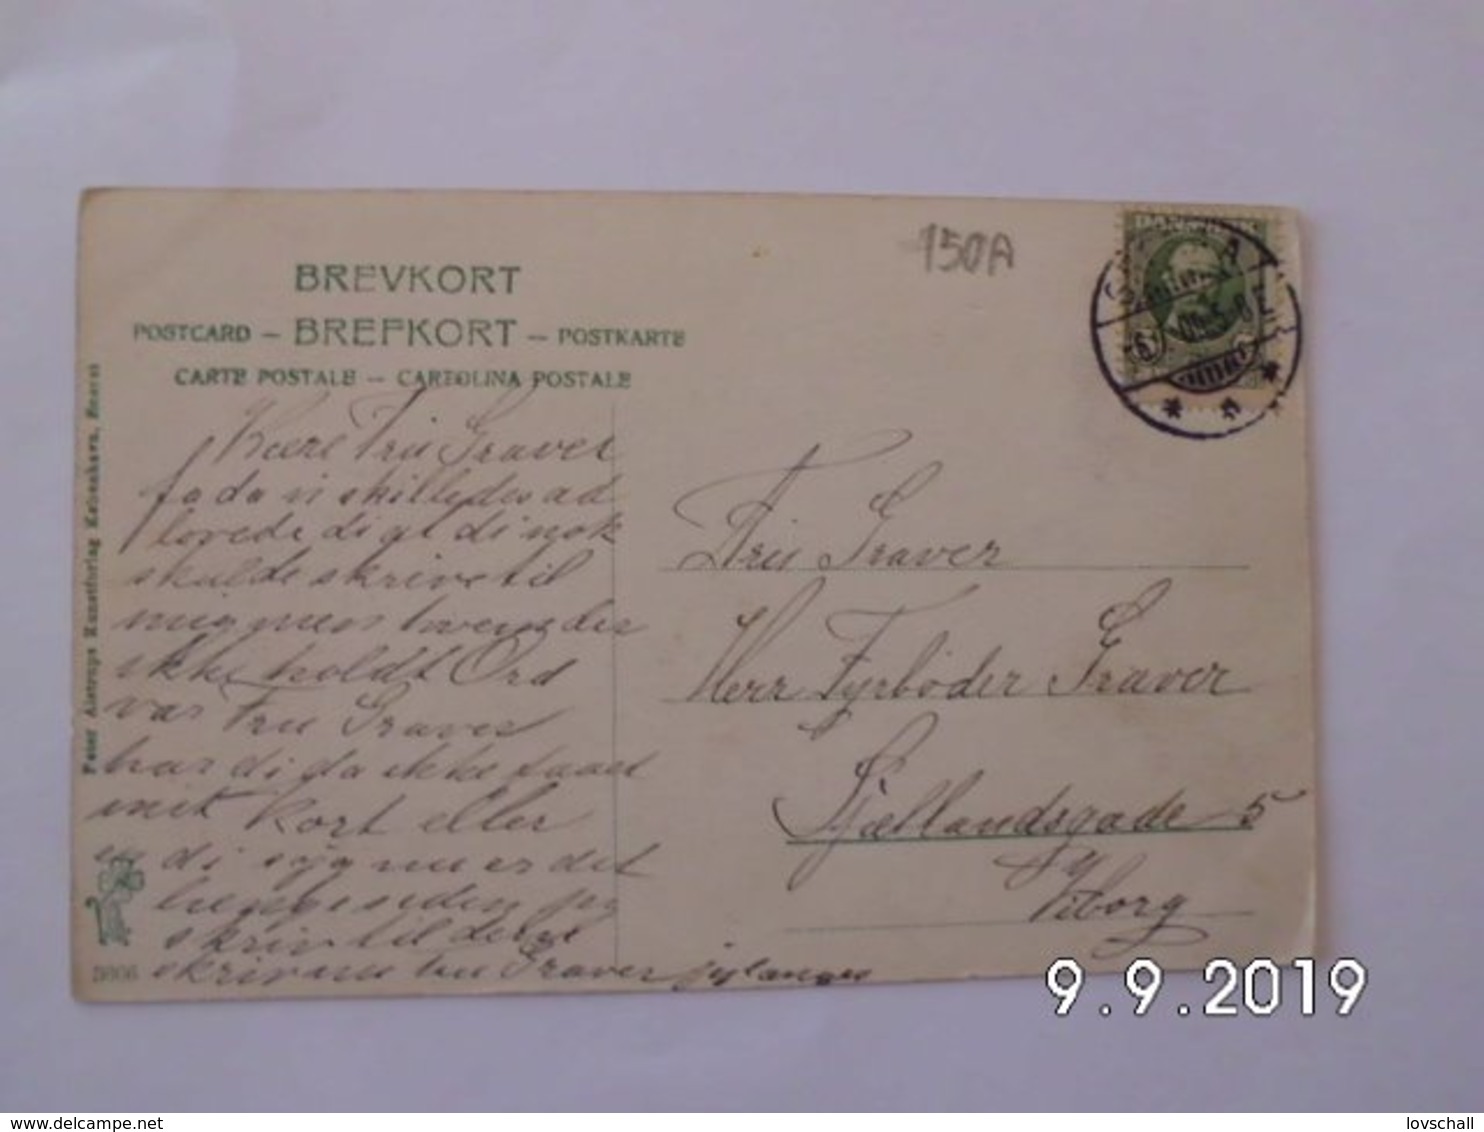 150A
DANMARK
BREVKORT
POSTCARD — BREFKORT — POSTKARTE
CARTE POSTALE — CARTOLINA POSTALE
Peter Alstrups Kunstforlag København, Eneret
Kære Fru Graver
ja da vi skilledes ad
lovede di at di nok
skulde skrive til
mig men
ikke holdt Ord
var Fru Graver
har di da ikke faaet
mit Kort eller
er di syg nu er det
længe siden jeg
skriv til dem
skriv nu Fru Graver
5606
Fru Graver
Herr Fyrböder Graver
Sjællandsgade 5
Viborg
9.9.2019
delcampe.net
lovschall